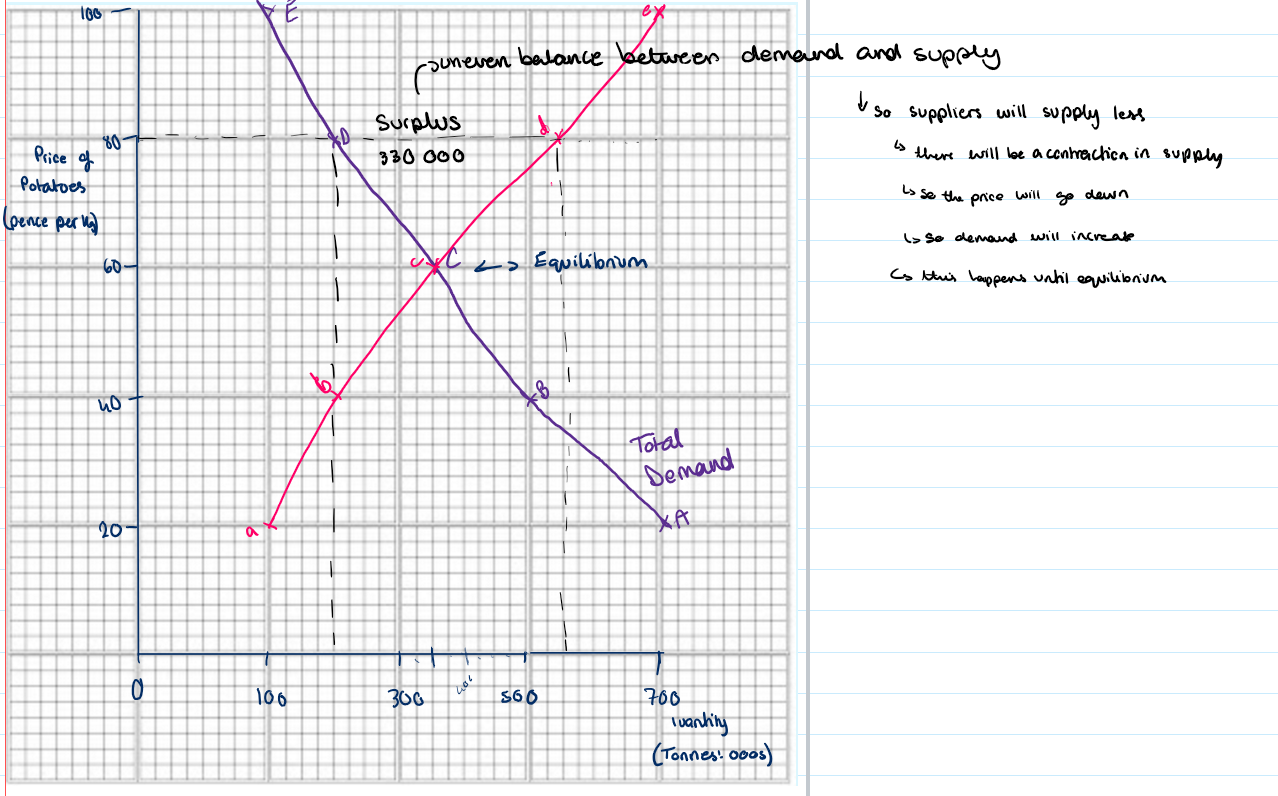 100
E
e
uneven balance between demand and supply
Surplus
330 000
80
D
d
Price of
Potatoes
(pence per Kg)
60
c
C
Equilibrium
b
40
B
Total
Demand
20
a
A
0
100
300
400
500
700
Quantity
(Tonnes: 000s)
so suppliers will supply less
there will be a contraction in supply
so the price will go down
so demand will increase
this happens until equilibrium